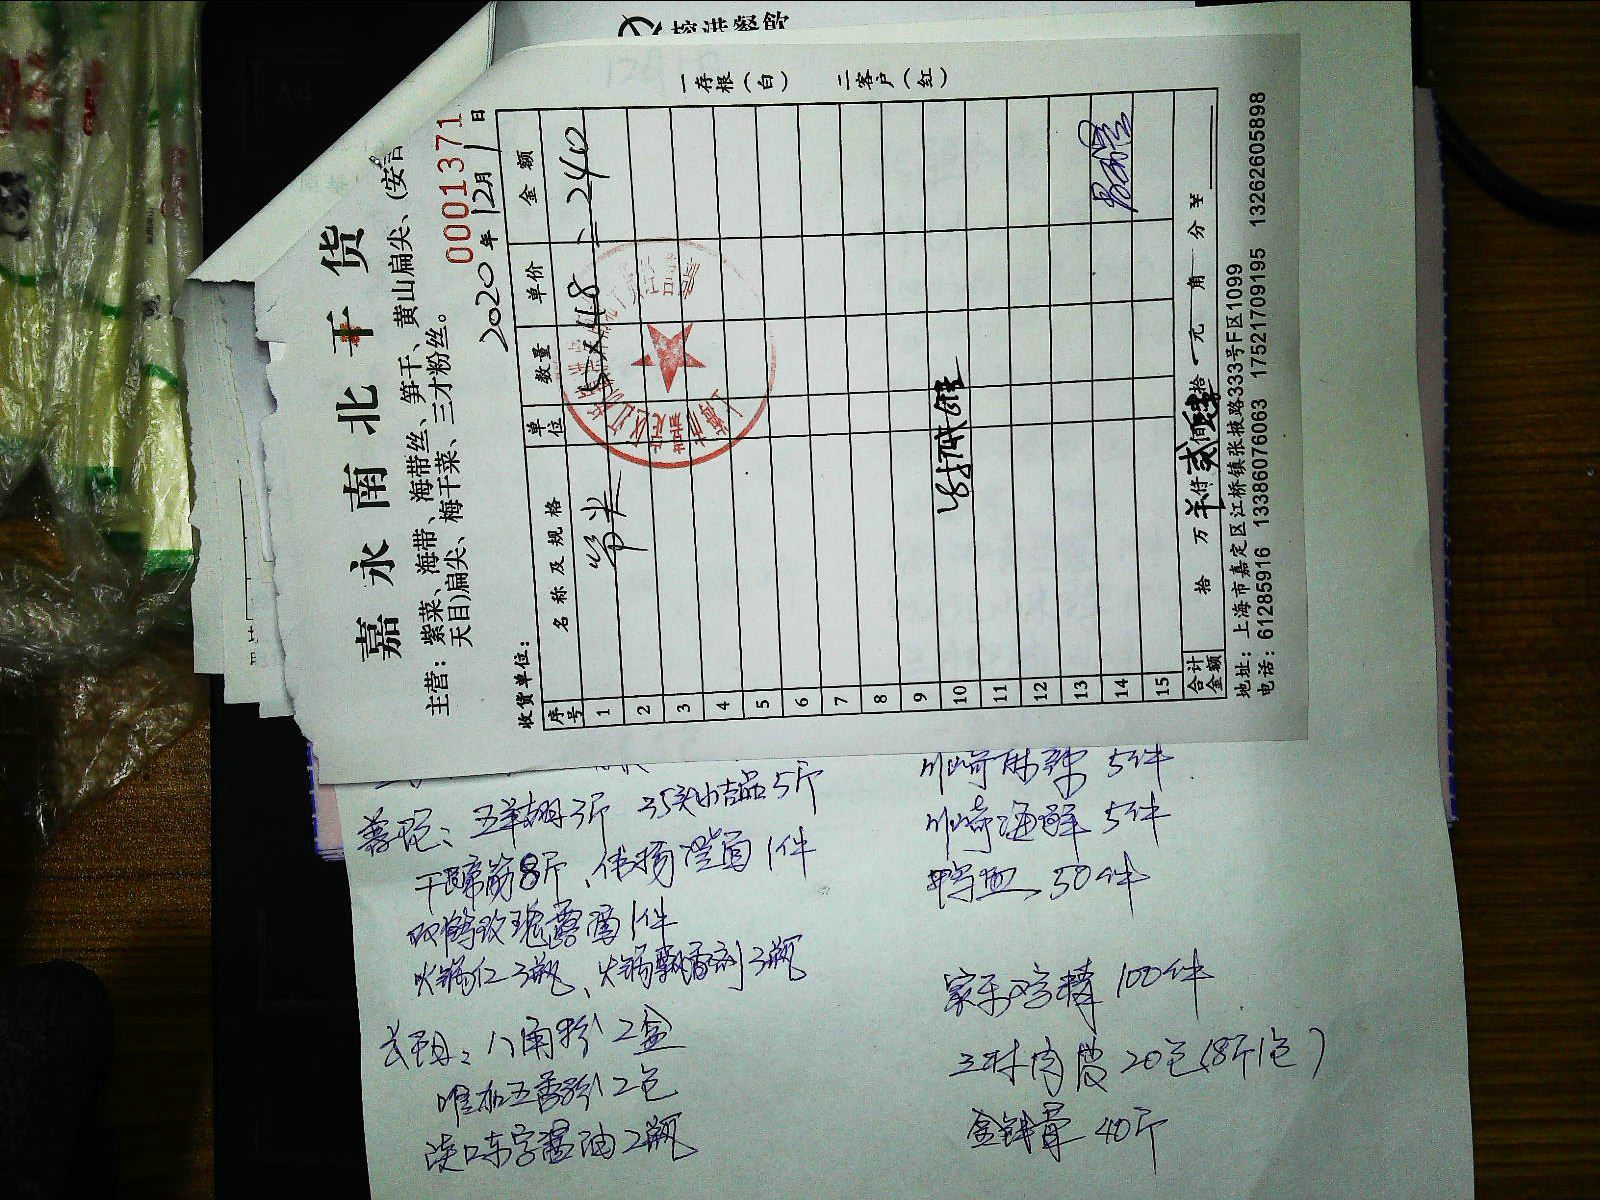 一存根(白) 二客户(红)
嘉永南北干货
主营：紫菜、海带、海带丝、笋干、黄山扁尖、(安吉
天目)扁尖、梅干菜、三才粉丝。
0001371
2020年12月1日
收货单位：
序号 名称及规格 单位 数量 单价 金额
1 笋尖 5×48 = 240
2
3
4
5
6
7
8
9
10
11
12
13
14
15
合计金额 拾 万 仟 贰佰 肆拾 元 角 分 ¥
地址：上海市嘉定区江桥镇张掖路333号F区1099
电话：61285916 13386076063 17521709195 13262605898
5斤
干蹄筋8斤、伟扬澄面1件
双鹤玫瑰露酒1件
火锅红3瓶、火锅飘香剂3瓶
八角粉2盒
味加五香粉2包
淡口东字酱油2瓶
川崎麻辣 5件
川崎海鲜 5件
鸭血、50件
家乐鸡精 100件
肉皮 20包(8斤1包)
40斤